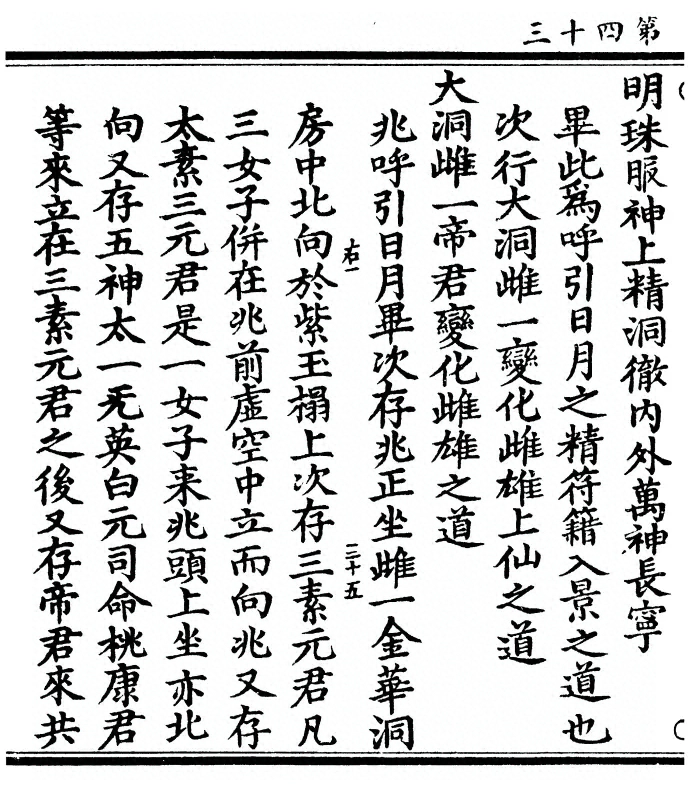 第四十三
明珠服神上精洞徹內外萬神長寧
畢此為呼引日月之精符籍入景之道也
次行大洞雌一變化雌雄上仙之道
大洞雌一帝君變化雌雄之道
兆呼引日月畢次存兆正坐雌一金華洞
右一
三十五
房中北向於紫玉榻上次存三素元君凡
三女子併在兆前虛空中立而向兆又存
太素三元君是一女子来兆頭上坐亦北
向又存五神太一无英白元司命桃康君
等來立在三素元君之後又存帝君來共